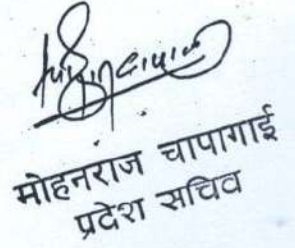 मोहनराज चापागाई
प्रदेश सचिव